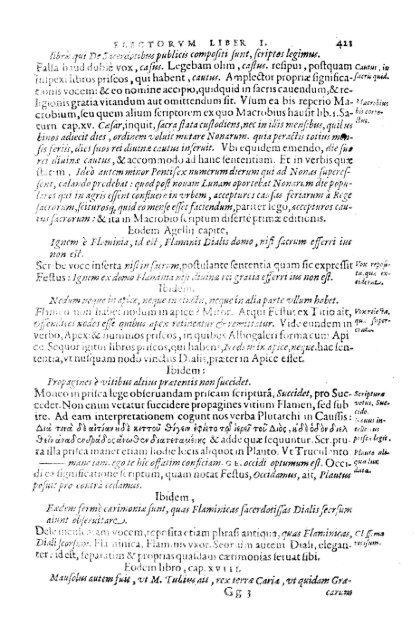 ELECTORVM LIBER I. 421
libris qui De Sacerdotibus publicis compositi sunt, scriptos legimus.
Falsa haud dubie vox, casus. Legebam olim, castus. resipui, postquam
inspexi libros priscos, qui habent, cautus. Amplector propriæ significa-
tionis vocem: & eo nomine accipio, quidquid in sacris cauendum, & re-
ligionis gratia vitandum aut omittendum sit. Vsum ea bis reperio Ma-
crobium, seu quem alium scriptorem ex quo Macrobius hausit lib. 1. Sa-
turn cap. xv. Cæsar, inquit, sacra stata custodiens, nec in illis mensibus, quibus
binos adiecit dies, ordinem voluit mutare Nonarum. quia peractis totius men-
sis feriis, dies suos rei diuinæ cautus inseruit. Vbi equidem emendo, die suo
rei diuinæ cautus, & accommodo ad hanc sententiam. Et in verbis quæ
statim, Ideo autem minor Pontifex numerum dierum qui ad Nonas superes-
sent, calando prodebat: quod post nouam Lunam oportebat Nonarum die popu-
lares qui in agris essent confluere in vrbem, accepturos causas feriarum à Rege
sacrorum, sciturosq, quid eo mense esset faciendum, pariter lego, accepturos cau-
tus sacrorum: & ita in Macrobio scriptum diserte primæ editionis.
Eodem Agellij capite,
Ignem è Flaminia, id est, Flaminis Dialis domo, nisi sacrum efferri ius
non est.
Scribe voce inserta nisi in sacrum, postulante sententia quam sic expressit
Festus: Ignem ex domo Flaminia nisi diuinæ rei gratia efferri ius non est.
Ibidem.
Nodum neque in apice, neque in cinctu, neque in alia parte vllum habet.
Flamen non habet nodum in apice? Miror. Atqui Festus ex Titio ait,
Offendices nodos esse quibus apex retineatur & remittatur. Vide eundem in
verbo, Apex: & nummos priscos, in quibus Albogaleri forma cum Api-
ce. Sequor igitur libros priscos, qui habent, Nodum in apice, neque. hac sen-
tentia, vt nusquam nodo vinctus Dialis, præter in Apice esset.
Ibidem:
Propagines è vitibus altius prætentis non succidet.
Moneo in prisca lege obseruandam priscam scripturā, Succidet, pro Suc-
cedet. Non enim vetatur succidere propagines vitium Flamen, sed sub-
ire. Ad eam interpretationem cogunt nos verba Plutarchi in Caussis:
& adde quæ sequuntur. Scriptu-
ra illa prisca manet etiam hodie locis aliquot in Plauto. Vt Truculento
—— manetam. ego te hîc offatim conficiam. GE. occidi optumum est. Occi-
di ex significatione scriptum, quam notat Festus, Occidamus, ait, Plautus
posuit pro contra cedamus.
Ibidem,
Eædem fermè cærimoniæ sunt, quas Flaminicas sacerdotissas Dialis seorsum
aiunt obseruitare.
Dele inculcatam vocem, reposita etiam phrasi antiqua, quas Flaminicas,
Diali seorsom. Flaminica, Flaminis vxor. Seorsum autem Diali, elegan-
ter: id est, separatim & proprias quasdam cærimonias seruat sibi.
Eodem libro, cap. XVIII.
Mausolus autem fuit, vt M. Tullius ait, rex terræ Cariæ, vt quidam Græ-
Gg 3 carum